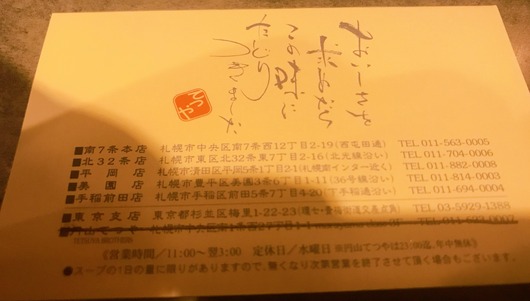 おいしさを
求めながら
この味に
たどり
つきました
てつや
■南7条本店 札幌市中央区南7条西12丁目2-19(西屯田通) TEL 011-563-0005
■北32条店 札幌市東区北32条東7丁目2-16(北光線沿い) TEL 011-704-0006
■平岡店 札幌市清田区平岡5条1丁目2-1(札幌南インター近く) TEL 011-882-0008
■美園店 札幌市豊平区美園3条6丁目1-11(36号線沿い) TEL 011-814-0003
■手稲前田店 札幌市手稲区前田5条7丁目4-20(下手稲通沿い) TEL 011-694-0004
■東京支店 東京都杉並区梅里1-22-23(環七・青梅街道交差点角) TEL 03-5929-1388
■円山てつや 札幌市中央区
TETSUYA BROTHERS
《営業時間/11:00〜翌3:00 定休日/水曜日 ※円山てつやは23:00迄、年中無休》
●スープの1日の量に限りがありますので、無くなり次第営業を終了させて頂く場合もございます。